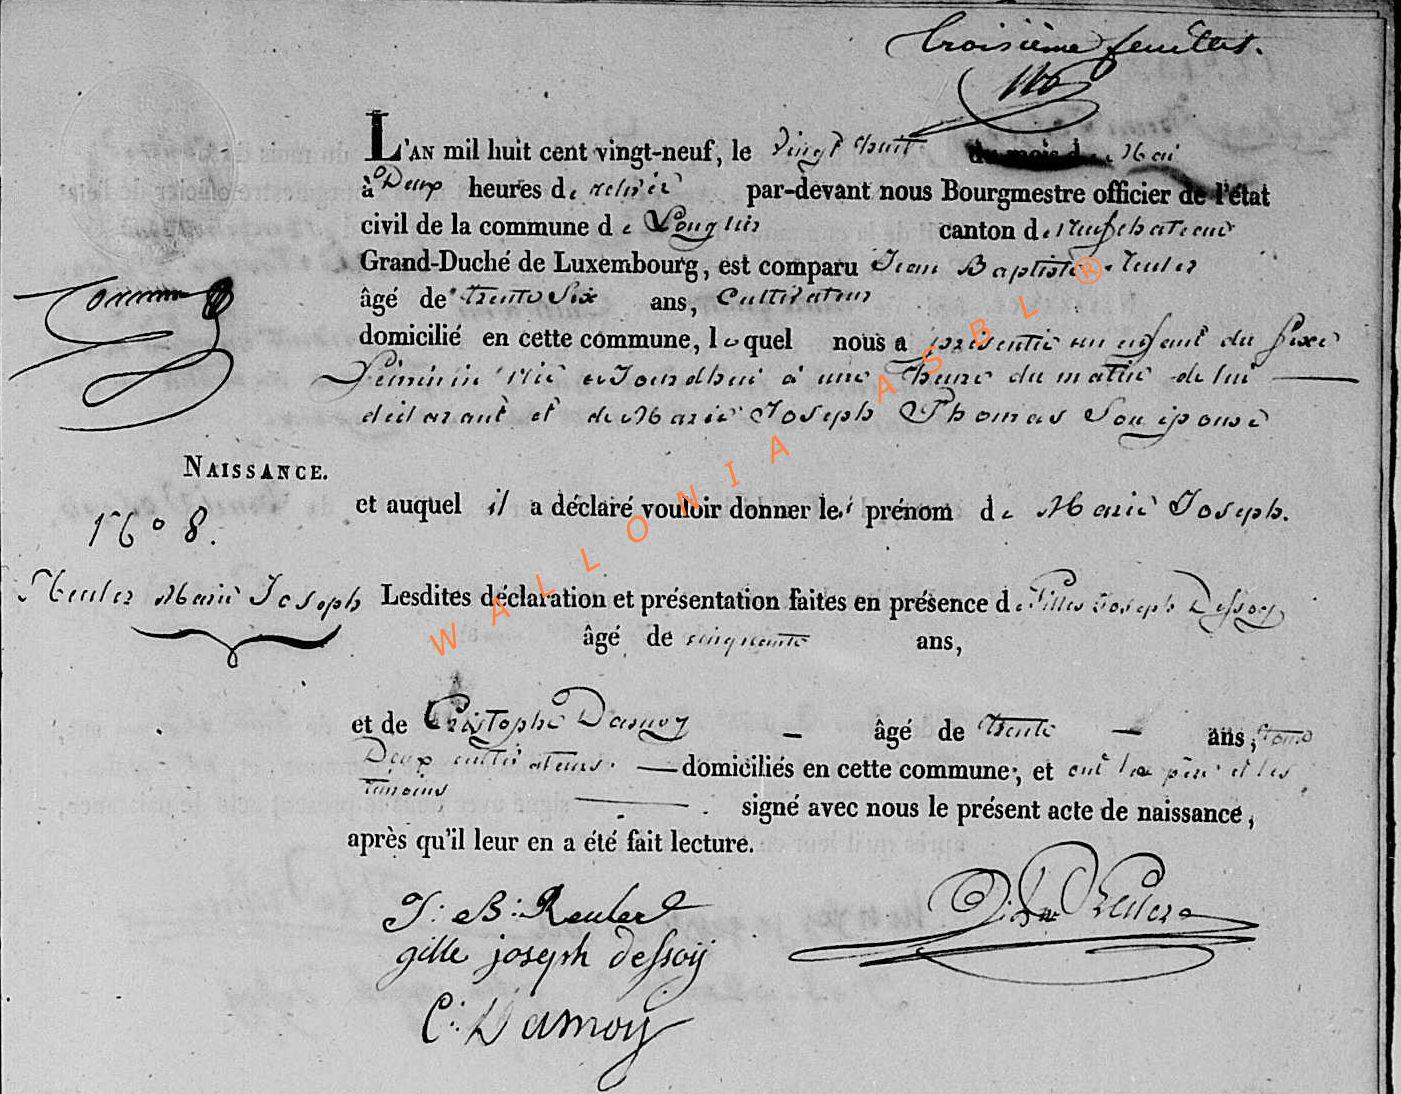 troisième feuillet.
L'AN mil huit cent vingt-neuf, le vingt huit du mois de Mai
à Deux heures de relevée par-devant nous Bourgmestre officier de l'état
civil de la commune de Longlier canton de neufchateau
Grand-Duché de Luxembourg, est comparu Jean Baptiste Reuler
âgé de trente Six ans, Cultivateur
domicilié en cette commune, lequel nous a présenté un enfant du sexe
féminin née aujourdhui à une heure du matin de lui
déclarant et de Marie Joseph Thomas Son épouse
NAISSANCE.
et auquel il a déclaré vouloir donner les prénom de Marie Joseph.
N° 8.
Reuler Marie Joseph
Lesdites déclaration et présentation faites en présence de Gilles Joseph Dessoy
âgé de cinquante ans,
et de Cristophe Damoy âgé de trente ans,
Deux cultivateurs domiciliés en cette commune, et ont le père et les
témoins signé avec nous le présent acte de naissance,
après qu'il leur en a été fait lecture.
J: B: Reuler
gille joseph dessoy
C: Damoy
WALLONIA ASBL ®